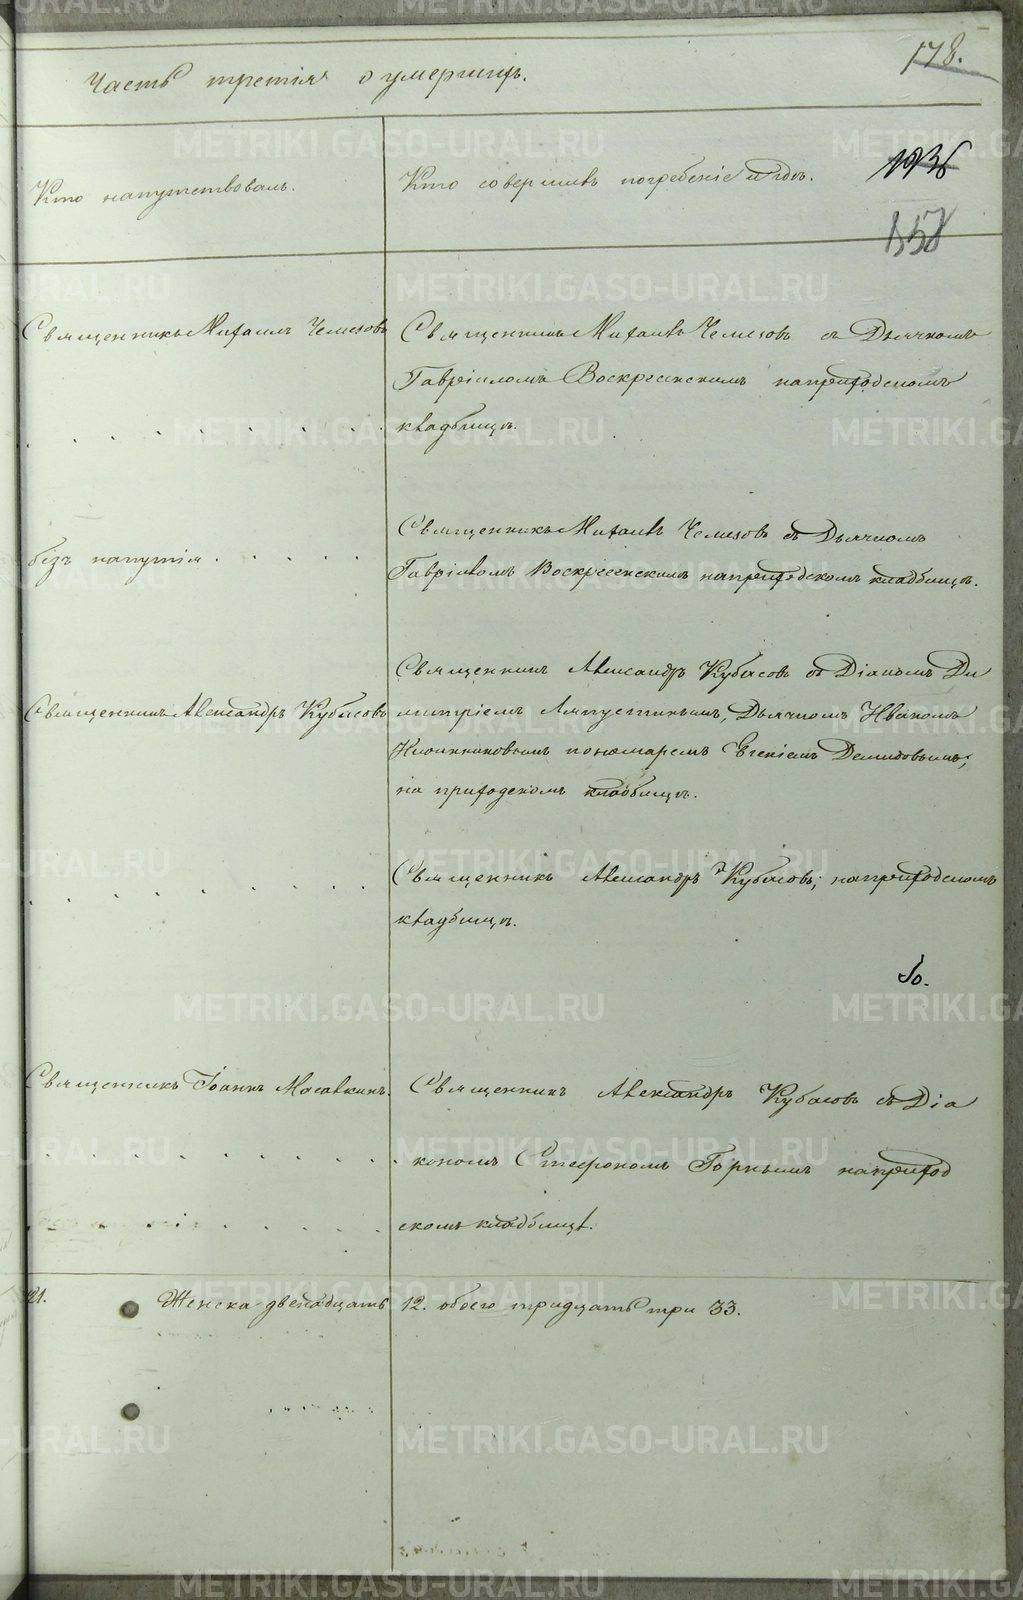 178.
Часть третія о умершихъ.
Кто напутствовалъ.
Кто совершилъ погребеніе и гдѣ.
1036
557
Священникъ Михаилъ Чемезовъ
Священникъ Михаилъ Чемезовъ съ Дьячкомъ
Гавріиломъ Воскресенскимъ наприходскомъ
кладбищѣ.
Священникъ Михаилъ Чемезовъ съ Дьячкомъ
безъ напутія
Гавріиломъ Воскресенскимъ наприходскомъ кладбищѣ.
Священникъ Александръ Кубасовъ съ Діакономъ Ди
Священникъ Александръ Кубасовъ
митріемъ Ляпустинымъ, Дьячкомъ Иваномъ
пономаремъ Евгеніемъ Демидовымъ;
на приходскомъ кладбищѣ.
Священникъ Александръ Кубасовъ; наприходскомъ
кладбищѣ.
Священникъ Іоаннъ
Священникъ Александръ Кубасовъ съ Діа
кономъ Стефаномъ Горнымъ наприход
скомъ кладбищѣ.
21. Женска двенадцать 12. обоего тридцать три 33.
METRIKI.GASO-URAL.RU